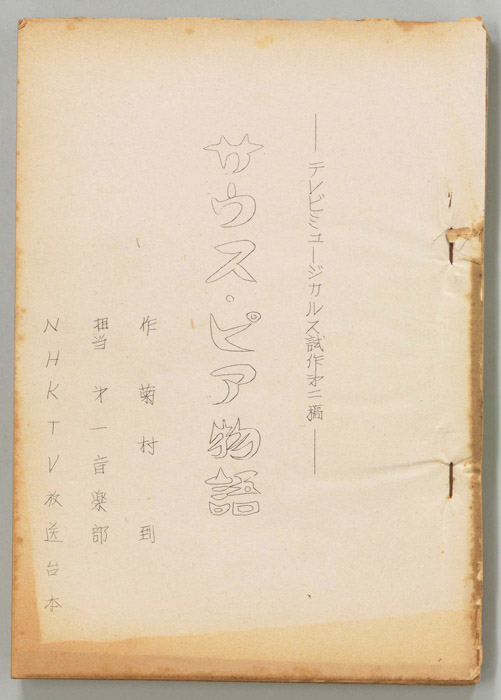 ―テレビミュージカルス試作才二稿―
サウス・ピア物語
作 菊村 到
担当 才一音楽部
NHKTV放送台本